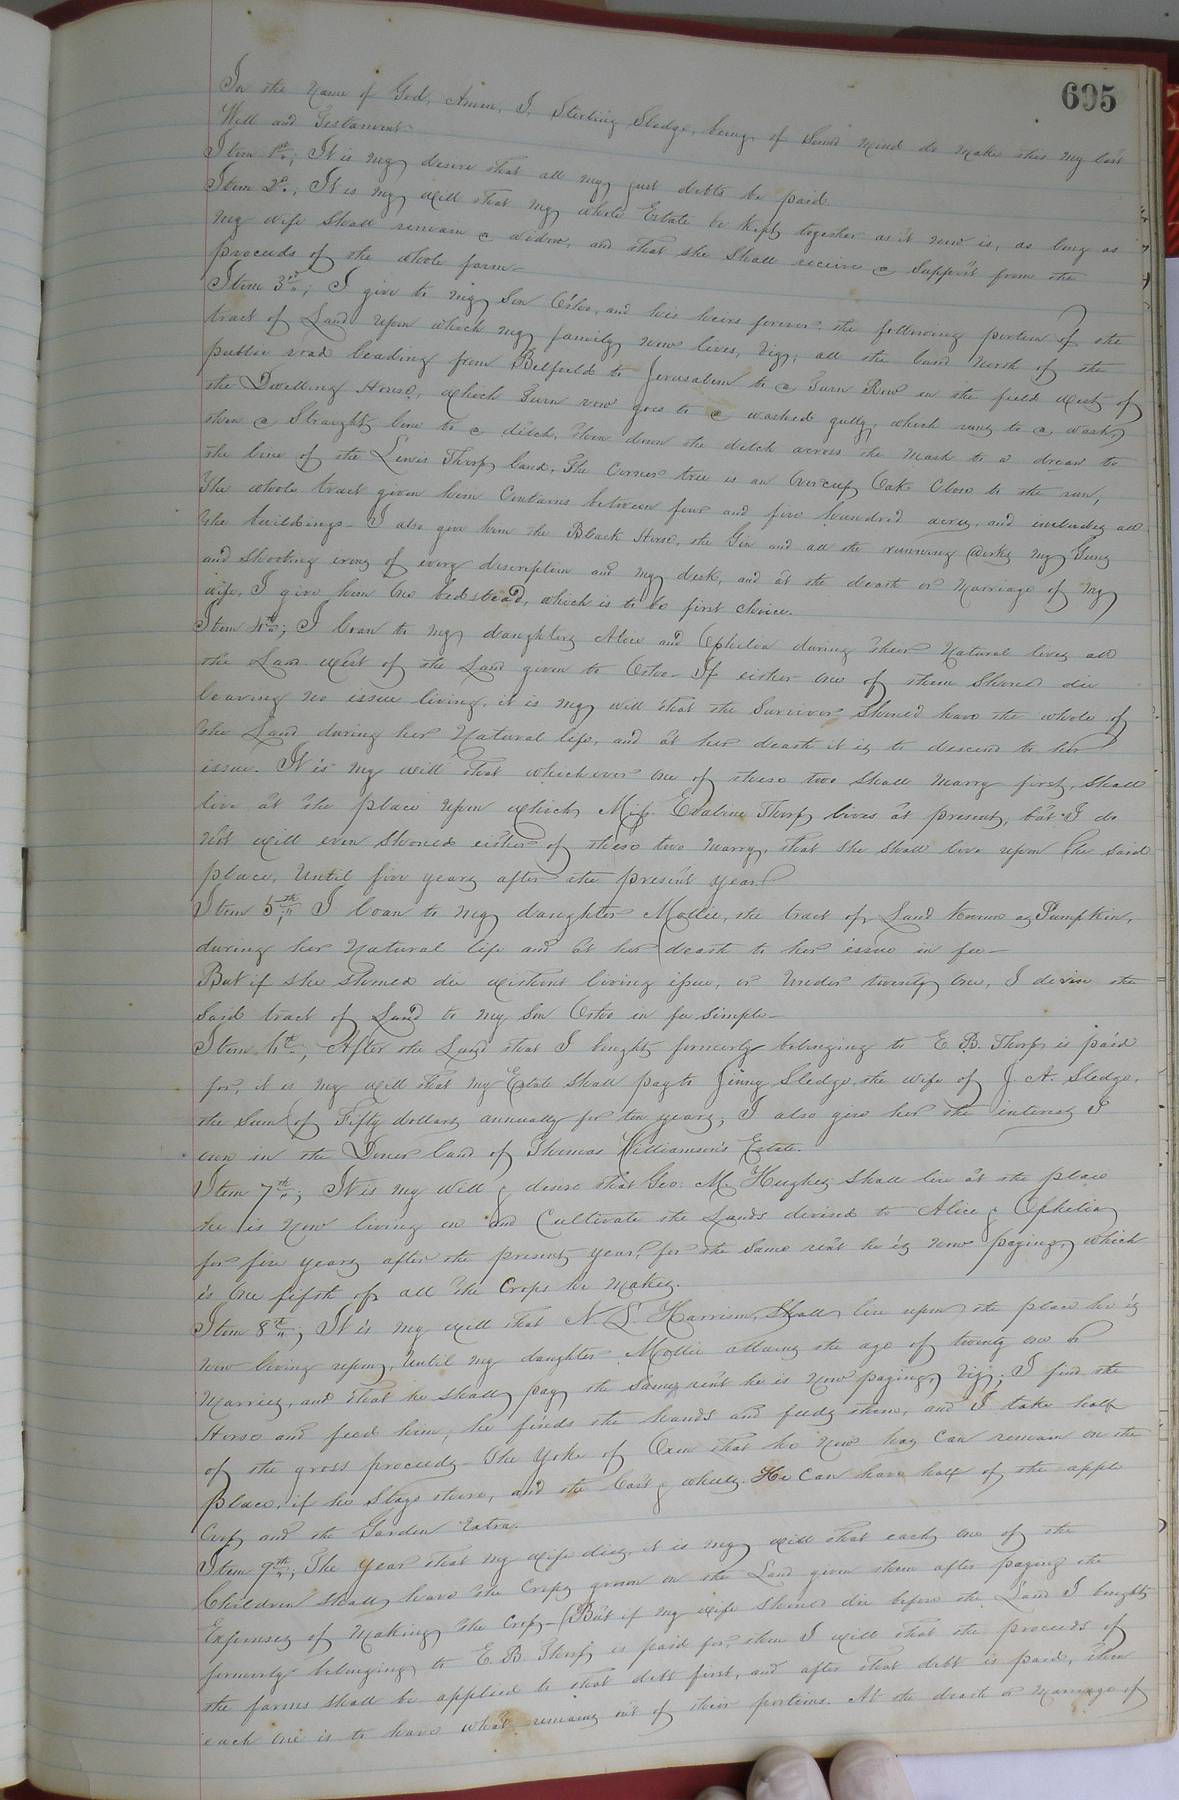 695
In the Name of God, Amen, I, Sterling Sledge, being of Sound Mind do Make this my last
Will and Testament.
Item 1st.; It is my desire that all my just debts be paid
Item 2d.; It is my will that my whole Estate be Kept together as it now is, as long as
my wife Shall remain a widow, and that she Shall receive a Support from the
proceeds of the whole farm—
Item 3rd.; I give to my Son Osho, and his heirs forever, the following portion of the
tract of Land upon which my family now lives, viz; all the land North of the
public road leading from Belfield to Jerusalem to a Turn Row in the field West of
the Dwelling House, which Turn row goes to a washed gully, which runs to a wash,
then a Straight line to a ditch, then down the ditch across the Mash to a drean to
the line of the Lewis Thorp land, The Corner tree is an Overcup Oak Close to the run,
The whole tract given him Contains between four and five hundred acres, and includes all
the buildings— I also give him the Black Horse, the Gin and all the running Works my Guns
and Shooting irons of every description and my desk, and at the death or Marriage of my
wife, I give him One bedstead, which is to be first choice.
Item 4th.; I loan to my daughters Alice and Ophelia during their Natural lives all
the Land West of the Land given to Osho— If either One of them Should die
leaving no issue living, it is my will that the Survivor Should have the whole of
the Land during her Natural life, and at her death it is to descend to her
issue. It is my will that whichever One of these two Shall Marry first, Shall
live at the place upon which Miss Evaline Thorp lives at present, but I do
not will even Should either of these two Marry, that She Shall live upon the Said
place, Until five years after the present year.
Item 5th.; I loan to my daughter Mollie, the tract of Land Known as Pumpkin,
during her Natural life and at her death to her issue in fee—
But if She Should die without living issue, or Under twenty One, I devise the
Said tract of Land to my Son Osho in fee Simple—
Item 6th.; After the Land that I bought formerly belonging to E. B. Thorp is paid
for, it is my will that my Estate Shall pay to Jinny Sledge, the wife of J. A. Sledge,
the Sum of Fifty dollars annually for ten years, I also give her the interest I
own in the Dower land of Thomas Williamson's Estate.
Item 7th.; It is my Will & desire that Geo. M. Hughes Shall live at the place
he is Now living on and Cultivate the Lands devised to Alice & Ophelia
for five years after the present year, for the Same rent he is Now paying, which
is One fifth of all the Crops he Makes.
Item 8th.; It is my will that N. L. Harrison, Shall live upon the place he is
now living upon, Until my daughter Mollie attains the age of twenty One or
Marries, and that he Shall pay the Same rent he is Now paying, viz; I find the
Horse and feed him, he finds the hands and feeds them, and I take half
of the gross proceeds— The Yoke of Oxen that he Now has Can remain on the
Place, if he Stays there, and the Cart & wheels. He Can have half of the apple
Crop and the Garden Extra.
Item 9th.; The year that my wife dies, it is my will that each One of the
Children Shall have the Crops grown on the Land given them after paying the
Expenses of Making the Crop— But if my wife Should die before the Land I bought
formerly belonging to E. B. Thorp is paid for, then I will that the proceeds of
the farms Shall be applied to that debt first, and after that debt is paid, then
each One is to have what remains out of their portions. At the death or Marriage of